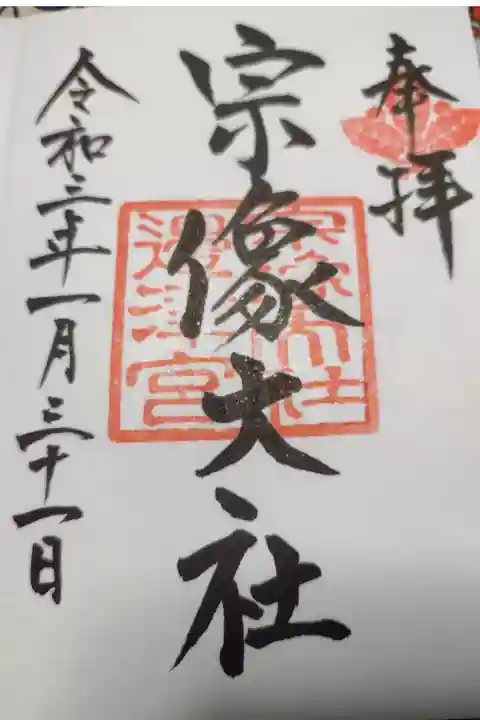 奉拝
宗像大社
宗像大社
邊津宮
令和三年一月三十一日